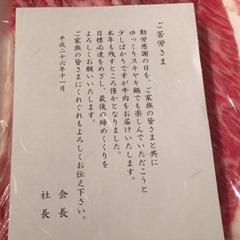 ご苦労さま
勤労感謝の日を、ご家族の皆さまと共に
ゆっくりスキヤキ鍋でも楽しんでいただこうと
少しばかりですが牛肉をお届けいたします。
本年も残すところ僅かとなりました。
目標必達をめざし、最後の締めくくりを
よろしくお願いいたします。
ご家族の皆さまにくれぐれもよろしくお伝え下さい。
平成二十六年十一月
会長
社長